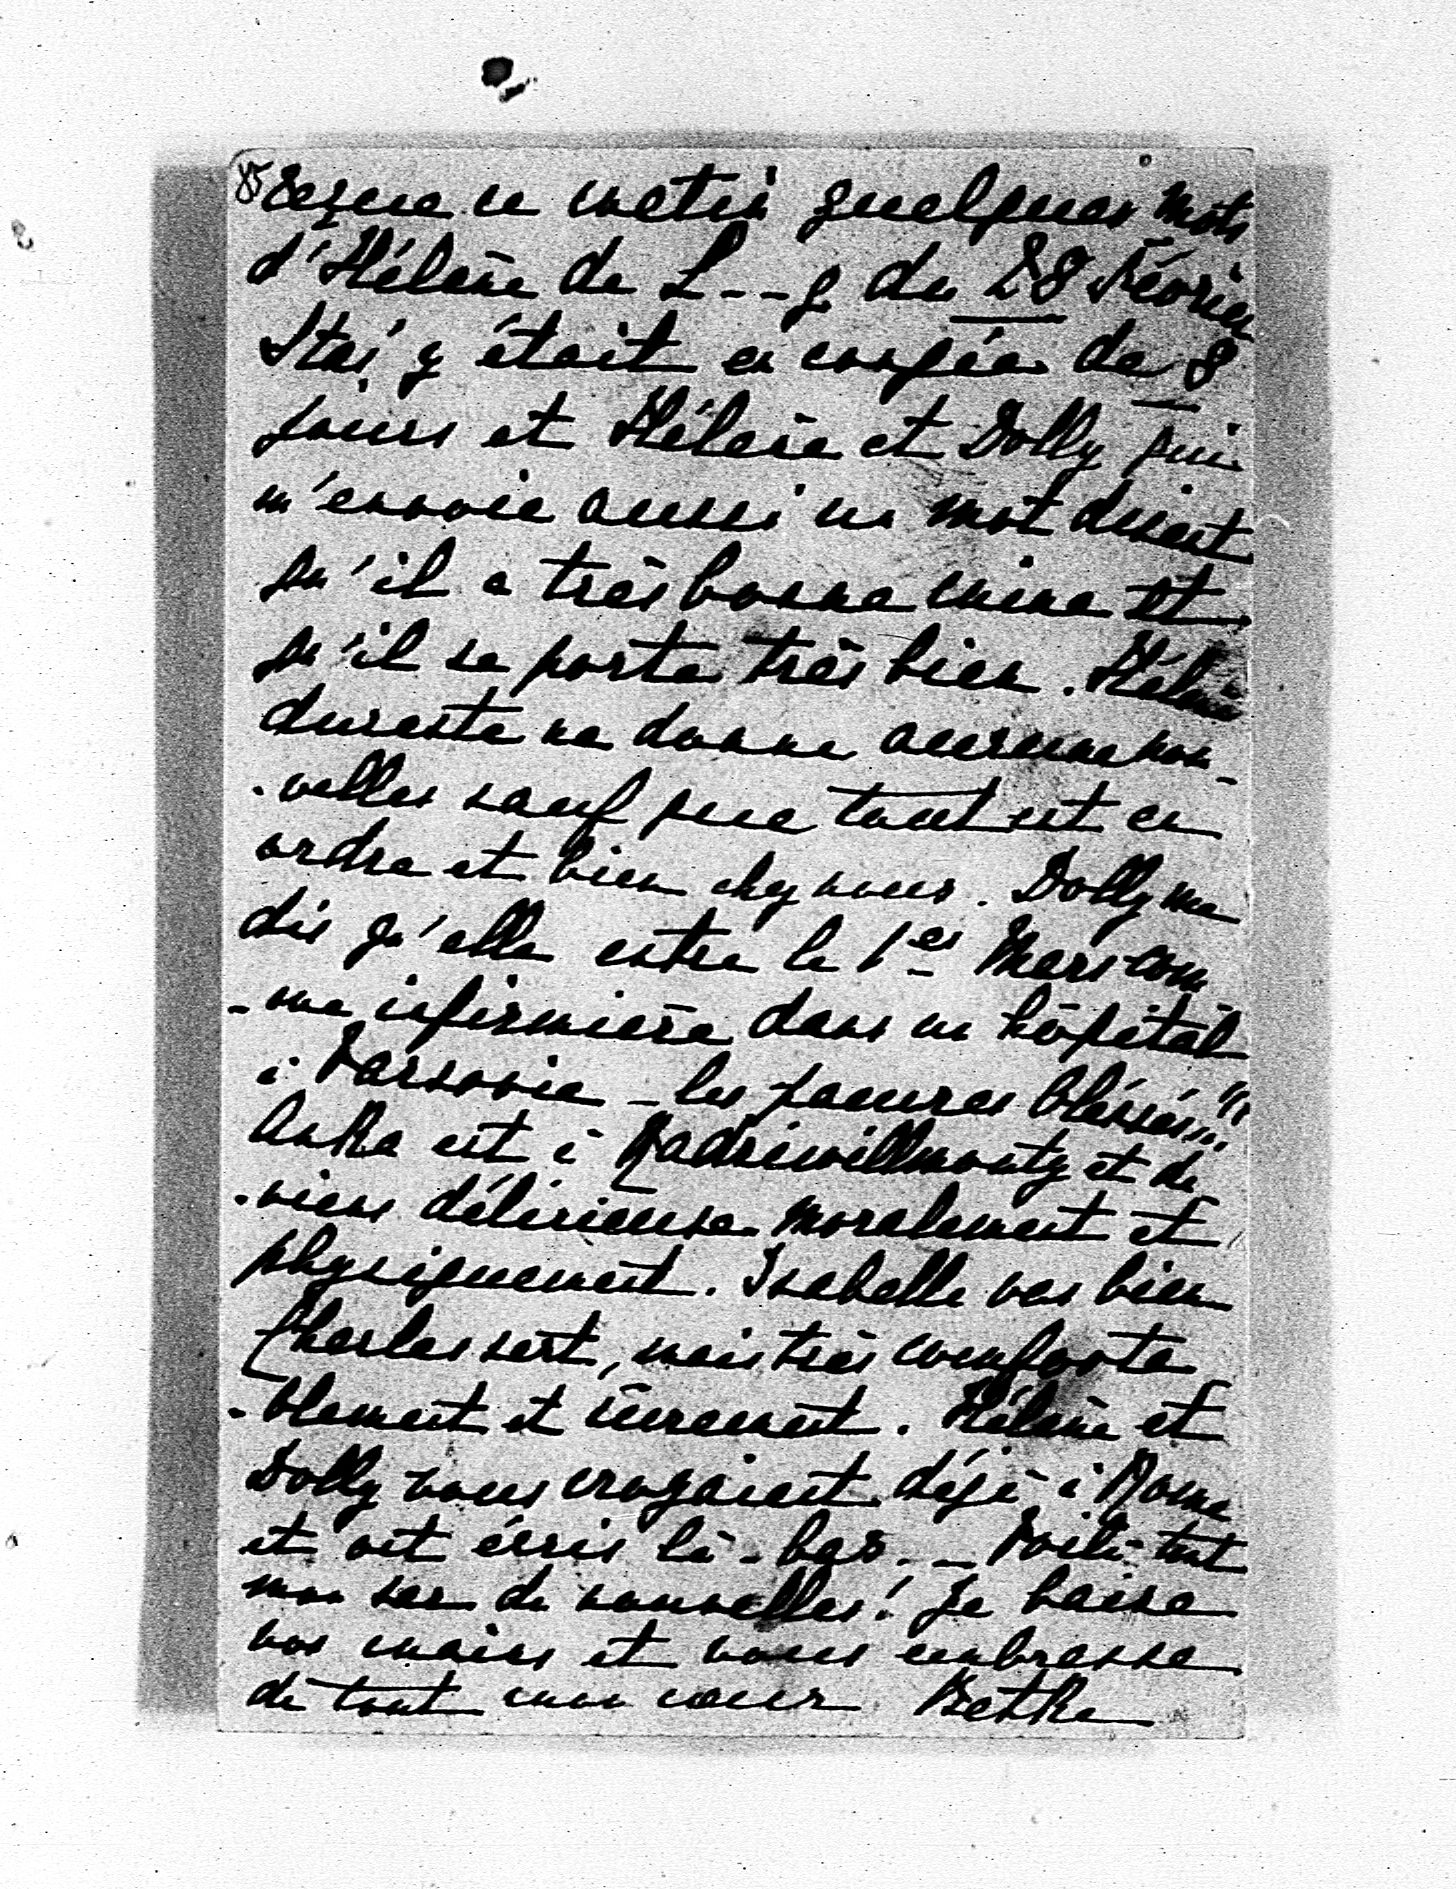 Reçue ce matin quelques mots
d'Hélène de L--g du 28 Février
Staś y était en congée de 8
jours et Hélène et Dolly qui
m'envoie aussi un mot disent
qu'il a très bonne mine et
qu'il se porte très bien. Hélène
dureste ne donne aucune nou-
-velles sauf que tout est en
ordre et bien chez nous. Dolly me
dis qu'elle entre le 1er Mars com
-me infirmière dans un hôpital
à Varsovie - les pauvres blessés!!!
Anka est à Radziwillmonty et de
-viens délicieuse moralement et
physiquement. Isabelle vas bien
Charles sert, mais très conforta
-blement et sûrement. Hélène et
Dolly vous croyaient déjà à Rome
et ont écris là-bas. - Voilà tout
mon sac de nouvelles! Je baise
vos mains et vous embrasse
de tout mon cœur Betka